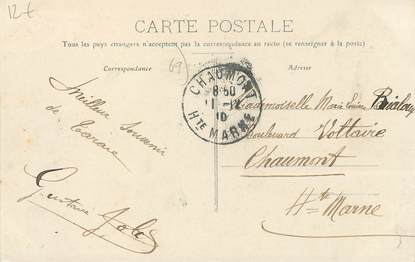 12€
CARTE POSTALE
Tous les pays étrangers n'acceptent pas la correspondance au recto (se renseigner à la poste)
Correspondance
Adresse
69
CHAUMONT
8·50
11-12
10
Hte MARNE
Meilleur souvenir
de
Gustave
Mademoiselle Marie Louise
Boulevard Voltaire
Chaumont
Hte Marne